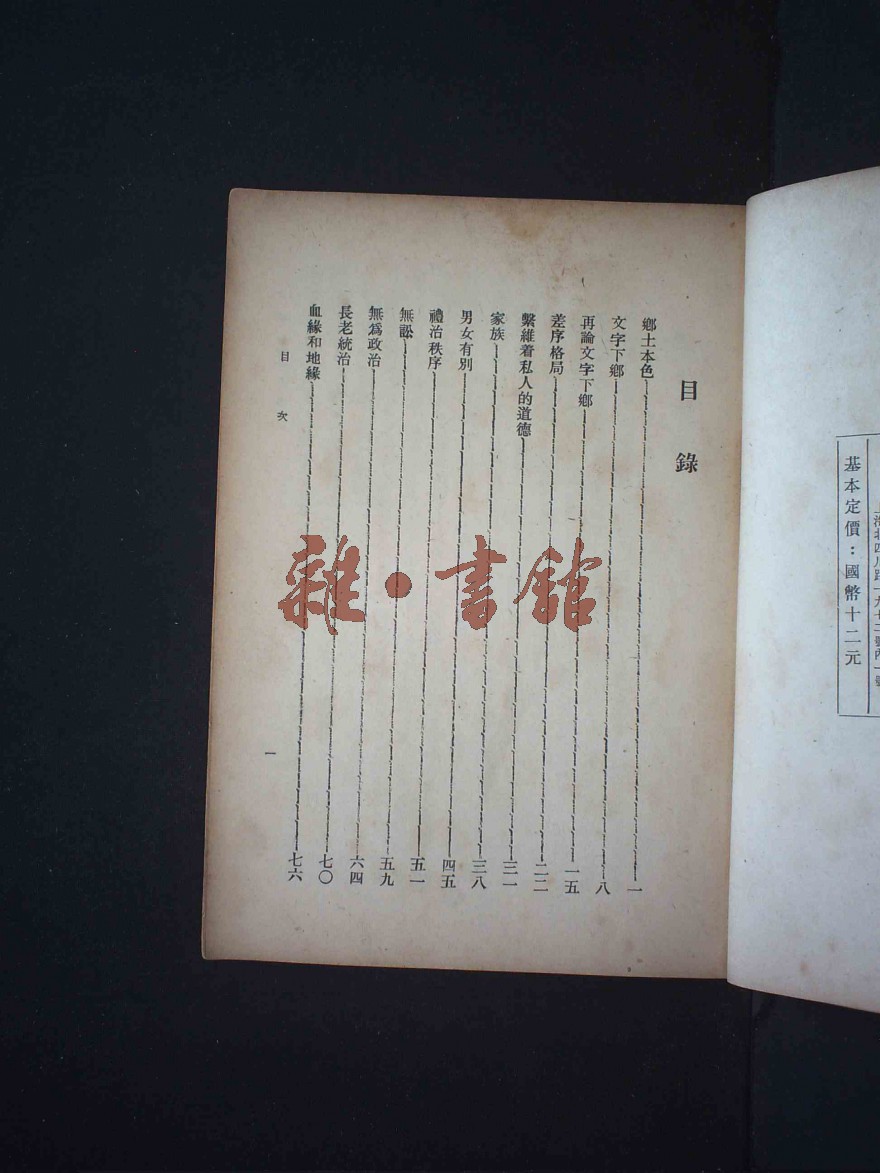 海北四川路一九
基本定價：國幣十二元
目錄
鄉土本色 一
文字下鄉 八
再論文字下鄉 一五
差序格局 二二
繫維着私人的道德 三一
家族 三八
男女有別 四五
禮治秩序 五一
無訟 五九
無爲政治 六四
長老統治 七〇
血緣和地緣 七六
目次 一
雜·書館